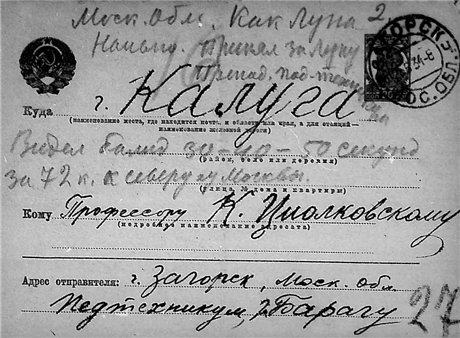 Моск. Обл. Как Луна 2
Принял за Луну
ЗАГОРСК
МОС. ОБЛ.
Куда г. Калуга
(наименование места, где находится почта, и области или края, а для станций—
наименование железной дороги)
Видел болид 30-40-50 секунд
(район, село или деревня)
за 72 к. к северу от Москвы.
(улица, № дома и квартиры)
Кому Профессору К. Циолковскому
(подробное наименование адресата)
Адрес отправителя: г. Загорск, Моск. обл.
Педтехникум, Барагу
27